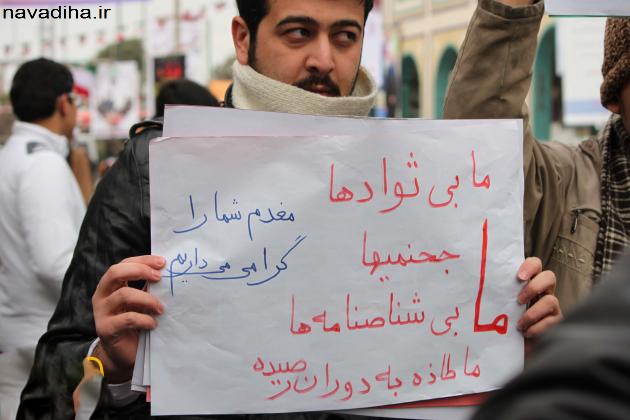 navadiha.ir نوادیها
ما بی ثوادها
جحنمیها
ما بی شناصنامه ها
ما طاذه به دوران رصیده
مغدم شما را
گرامی می داریم